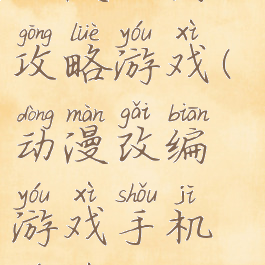 gōng lüè yóu xì
攻略游戏(
dòng màn gǎi biān
动漫改编
yóu xì shǒu jī
游戏手机